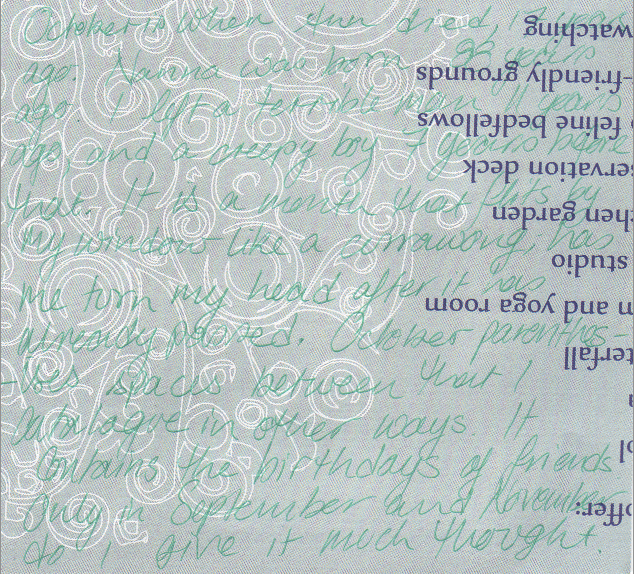 October is when Ann died, 13 years
ago. Nanna was born 92 years
ago. I left a terrible man 11 years
ago, and a creepy boy 7 years before
that. It is a month that flits by
my window like a currawong, has
me turn my head after it has
already passed. October parenthes-
-ises spaces between that I
catalogue in other ways. It
contains the birthdays of friends.
Only in September and November
do I give it much thought.
offer:
ol
a
terfall
m and yoga room
studio
chen garden
servation deck
feline bedfellows
-friendly grounds
watching